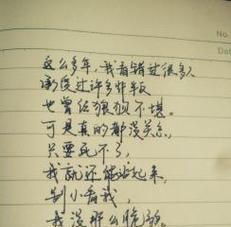 No
Dat
这么多年，我看错过很多人
承受过许多背叛
也曾经狼狈不堪。
可是真的都没关系，
只要死不了，
我就还能站起来，
别小看我，
我没那么脆弱。